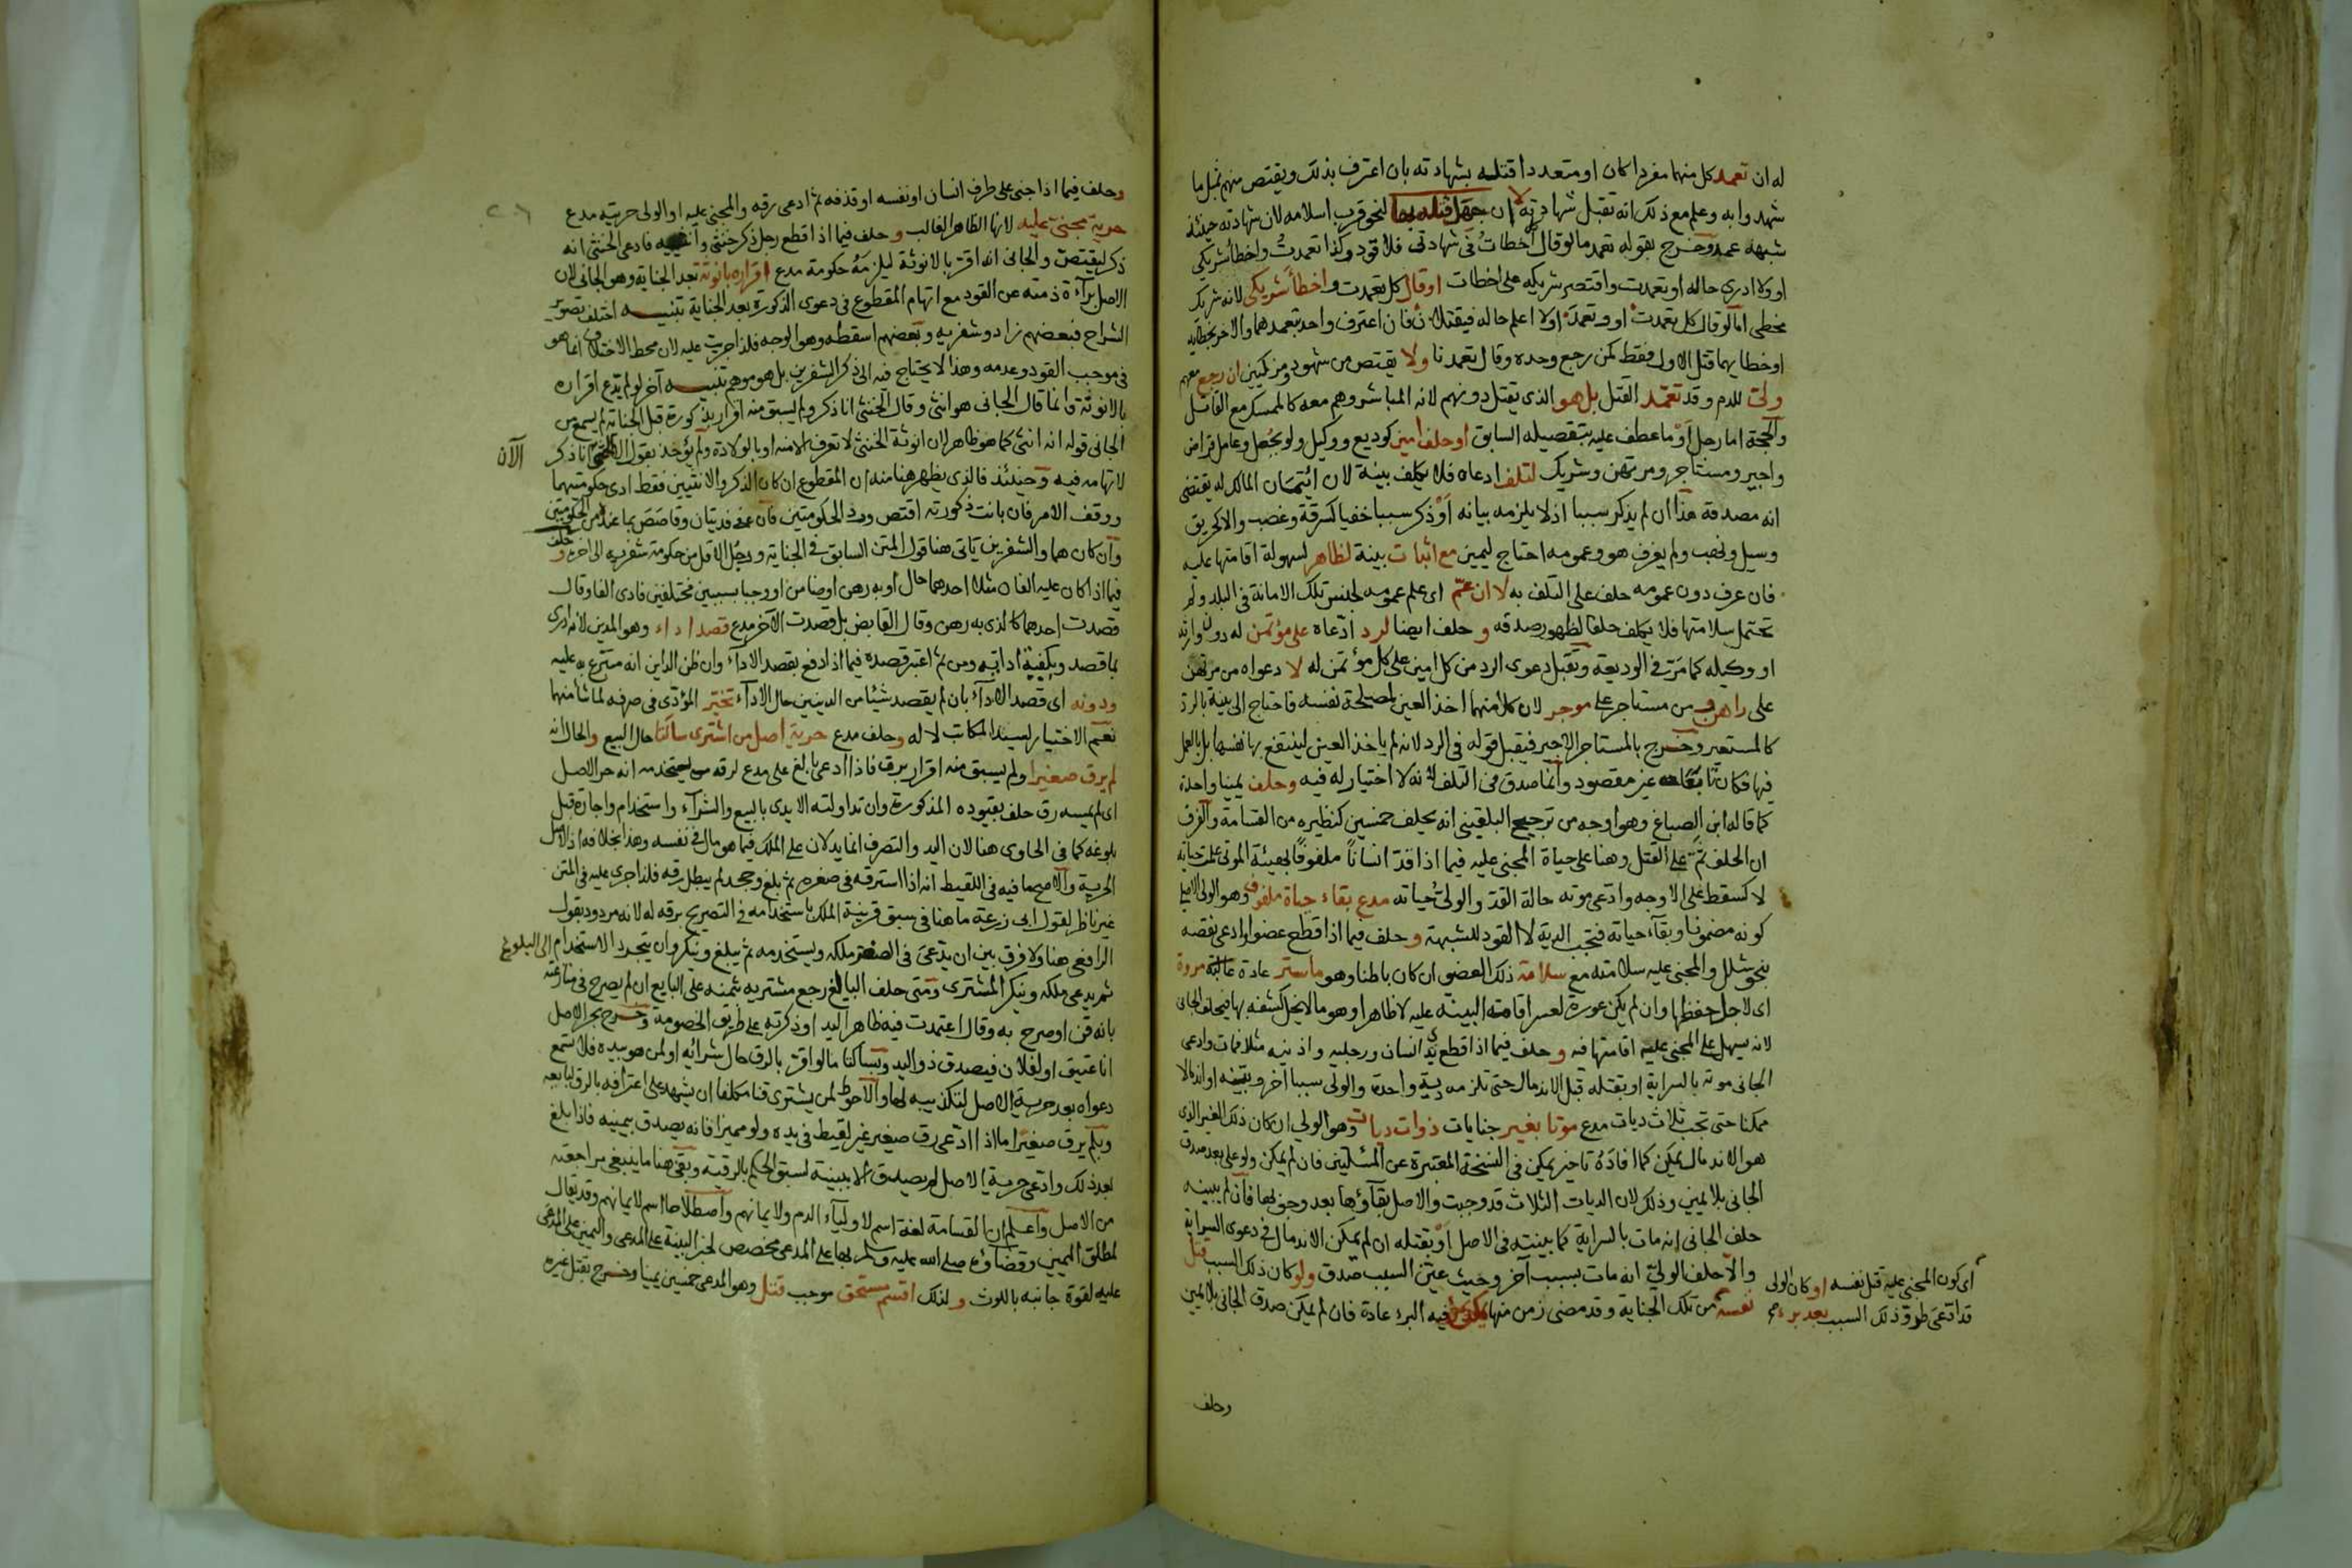 له ان تعمد كل منهما مفردا كان او متعددا قتله بشهادته بان اعترف بذلك ويقتص منهم بمثل ما
شهدوا به وعلم مع ذلك انه تقبل شهادته لا ان جهل قتله بها لنحو قرب اسلامه لان شهادته حينئذ
شبهه عمد وخرج بقوله تعمد ما لو قال اخطات في شهادتي فلا قود وكذا تعمدت واخطا شريكي
او ولا ادري حاله او تعمدت واقتصر شريكه على اخطات او قال كل تعمدت واخطا شريكي لانه شريك
مخطي اما لو قال كل تعمدت او وتعمد او ولا اعلم حاله فيقتلان فان اعترف واحد بتعمدهما والاخر بخطايه
او خطايهما قتل الاول فقط كمن رجع وحده وقال تعمدنا ولا يقتص من شهود ومزكيين ان رجع معهم
ولي للدم وقد تعمد القتل بل هو الذي يقتل دونهم لانه المباشر وهم معه كالممسك مع القاتل
والحجة اما رجل او ما عطف عليه بتفصيله السابق او حلف امين كوديع ووكيل ولو بجعل وعامل قراض
واجير ومستاجر ومرتهن وشريك لتلف ادعاه فلا يكلف بينة لان ائتمان المالك له يقتضي
انه مصدقه هذا ان لم يذكر سببا اذ لا يلزمه بيانه او ذكر سببا خفيا كسرقة وغصب والا كحريق
وسيل ونهب ولم يعرف هو وعمومه احتاج ليمين مع اثبات بينة لظاهر لسهولة اقامتها عليه
فان عرف دون عمومه حلف على التلف به لا ان عم اي علم عمومه لجنس تلك الامانة في البلد ولم
تحتمل سلامتها فلا يكلف حلفا لظهور صدقه و حلف ايضا لرد ادعاه على مؤتمن له دون وارثه
او وكيله كما مر في الوديعة وتقبل دعوى الرد من كل امين على كل مؤتمن له لا دعواه من مرتهن
على راهن و من مستاجر على موجر لان كلا منهما اخذ العين لمصلحة نفسه فاحتاج الى بينة بالرد
كالمستعير وخرج بالمستاجر الاجير فيقبل قوله في الرد لانه لم ياخذ العين لينتفع بها نفسها بل بالعمل
فيها فكان تابعا غير مقصود وانما صدق في التلف لانه لا اختيار له فيه وحلف يمينا واحدة
كما قاله ابن الصباغ وهو اوجه من ترجيح البلقيني انه يحلف خمسين كنظيره من القسامة والفرق
ان الحلف ثم على القتل وهنا على حياة المجني عليه فيما اذا قد انسانا ملفوفا بهيئة الموتى علمت حياته
لا كسقط على الاوجه وادعى موته حالة القد والولي حياته مدع بقاء حياة ملفوف وهو الولي الاصل
كونه مضمونا وبقاء حياته فتجب الدية لا القود للشبهة و حلف فيما اذا قطع عضوا وادعى نقصه
بنحو شلل والمجني عليه سلامته مع سلامة ذلك العضو ان كان باطنا وهو ما ستر عادة غالبة مروة
اي لاجل حفظها وان لم يكن عورة لعسر اقامته البينة عليه لا ظاهرا وهو ما لا يخل كشفه بها فيحلف الجاني
لانه يسهل على المجني عليه اقامتها فيه و حلف فيما اذا قطع يدي انسان ورجليه واذنيه مثلا فمات وادعى
الجاني موته بالسراية او بقتله قبل الاندمال حتى تلزمه دية واحدة والولي سببا آخر وبقيه او اندمالا
ممكنا حتى تجب ثلاث ديات مدع موتا بغير جنايات ذوات ديات وهو الولي ان كان ذلك الغير الذي
هو الاندمال يمكن كما افاده تاخير يمكن في النسخة المعتبرة عن المسئلتين فان لم يمكن ولو على بعد صدق
الجاني بلا يمين وذلك لان الديات الثلاث قد وجبت والاصل بقاؤها بعد وجوبها فان لم يبينه
حلف الجاني انه مات بالسراية كما بينته في الاصل او بقتله ان لم يمكن الاندمال في دعوى السراية
والا حلف الولي انه مات بسبب آخر وحيث عين السبب صدق ولو كان ذلك السبب قتل
نفسه من تلك الجناية وقد مضى زمن منها يمكن فيه البرء عادة فان لم يمكن صدق الجاني بلا يمين
اي كون المجني عليه قتل نفسه او كان الولي
قد ادعى طرو ذلك السبب بعد برء
وحلف
وحلف فيما اذا جنى على طرف انسان او نفسه او قذفه ثم ادعى رقه والمجني عليه او الولي حريته مدع
حرية مجني عليه لانها الظاهر الغالب و حلف فيما اذا قطع رجل ذكر خنثى وانثييه فادعى الخنثى انه
ذكر ليقتص والجاني انه اقر بالانوثة ليلزمه حكومة مدع اقراره بانوثة بعد الجناية وهو الجاني لان
الاصل براءة ذمته عن القود مع اتهام المقطوع في دعوى الذكورة بعد الجناية تنبيه اختلف تصوير
الشراح فبعضهم زاد وشفريه وبعضهم اسقطه وهو الاوجه فلذا جريت عليه لان محط الاختلاف انما هو
في موجب القود وعدمه وهذا لا يحتاج فيه الى ذكر الشفرين بل هو موهم تنبيه آخر لو لم يدع اقراره
بالانوثة وانما قال الجاني هو انثى وقال الخنثى انا ذكر ولم يسبق منه اقرار بذكورة قبل الجناية لم يسمع من
الجاني قوله انه انثى كما هو ظاهر لان انوثة الخنثى لا تعرف الا منه او بالولادة ولم يؤخذ بقول الخنثى انا ذكر
الآن
لاتهامه فيه وحينئذ فالذي يظهر هنا منه ان المقطوع ان كان الذكر والانثيين فقط ادى حكومتيهما
ووقف الامر فان بانت ذكورته اقتص ورد الحكومتين فان عفى فديتان وقاصص بما عنده من الحكومتين
وان كان هما والشفرين ياتي هنا قول المتن السابق في الجناية ورجل الاقل من حكومة شفريه الى اخره و حلف
فيما اذا كان عليه الفان مثلا احدهما حال او به رهن او ضامن او وجبا بسببين مختلفين فادى الفا وقال
قصدت احدهما كالذي به رهن وقال القابض بل قصدت الآخر مدع قصد اداء وهو المدين لانه ادرى
بما قصد وبكيفية ادائه ومن ثم اعتبر قصده فيما اذا دفع بقصد الاداء وان ظن الداين انه متبرع به عليه
ودونه اي قصد الاداء بان لم يقصد شيئا من الدينين حال الاداء تخير المؤدي في صرفه لما شا منهما
نعم الاختيار لسيد المكاتب لا له وحلف مدع حرية اصل من اشترى ساكتا حال البيع والحال انه
لم يرق صغيرا ولم يسبق منه اقرار برق فاذا ادعى بالغ على مدع لرقه يستخدمه انه حر الاصل
اي لم يمسه رق حلف بقيوده المذكورة وان تداولته الايدي بالبيع والشراء واستخدام واجارة قبل
بلوغه كما في الحاوي هنا لان اليد والتصرف انما يدلان على الملك فيما هو مال في نفسه وهذا بخلافه اذ الاصل
الحرية والاصح ما فيه في اللقيط انه اذا استرقه في صغره ثم بلغ وجحد لم يبطل رقه فلذا جرى عليه في المتن
غير ناظر لقول ابي زرعة ما هنا في سبق قرينة الملك باستخدامه في التصريح برقه له لانه مردود بقول
الرافعي هنا ولا فرق بين ان يدعى في الصغر ملكه ويستخدمه ثم يبلغ وينكر وان يتجرد الاستخدام الى البلوغ
ثم يدعي ملكه وينكر المشترى ومتى حلف البالغ رجع مشتريه بثمنه على البايع ان لم يصرح في منازعته
بانه قن او صرح به وقال اعتمدت فيه ظاهر اليد او ذكرته على طريق الخصومة وخرج بحر الاصل
انا عتيق او لفلان فيصدق ذو اليد وبساكتا ما لو اقر بالرق حال شرائه او لمن هو بيده فلا تسمع
دعواه بعد حرية الاصل لتكذيبه لها والاحوط لمن يشتري قنا مكلفا ان يشهد على اعترافه بالرق لبايعه
وبلم يرق صغيرا ما اذا ادعى رق صغير غير لقيط في يده ولو مميزا فانه يصدق بيمينه فاذا بلغ
بعد ذلك وادعى حرية الاصل لم يصدق الا ببينة لسبق الحكم بالرقية وبقي هنا ما ينبغي مراجعته
من الاصل واعلم ان القسامة لغة اسم لاولياء الدم ولايمانهم واصطلاحا اسم لايمانهم وقد يقال
لمطلق اليمين وقضاؤه صلى الله عليه وسلم بها على المدعي مخصص لخبر البينة على المدعي واليمين على المدعى
عليه لقوة جانبه باللوث و لذلك اقسم مستحق موجب قتل وهو المدعي خمسين يمينا وخرج بقتل غيره